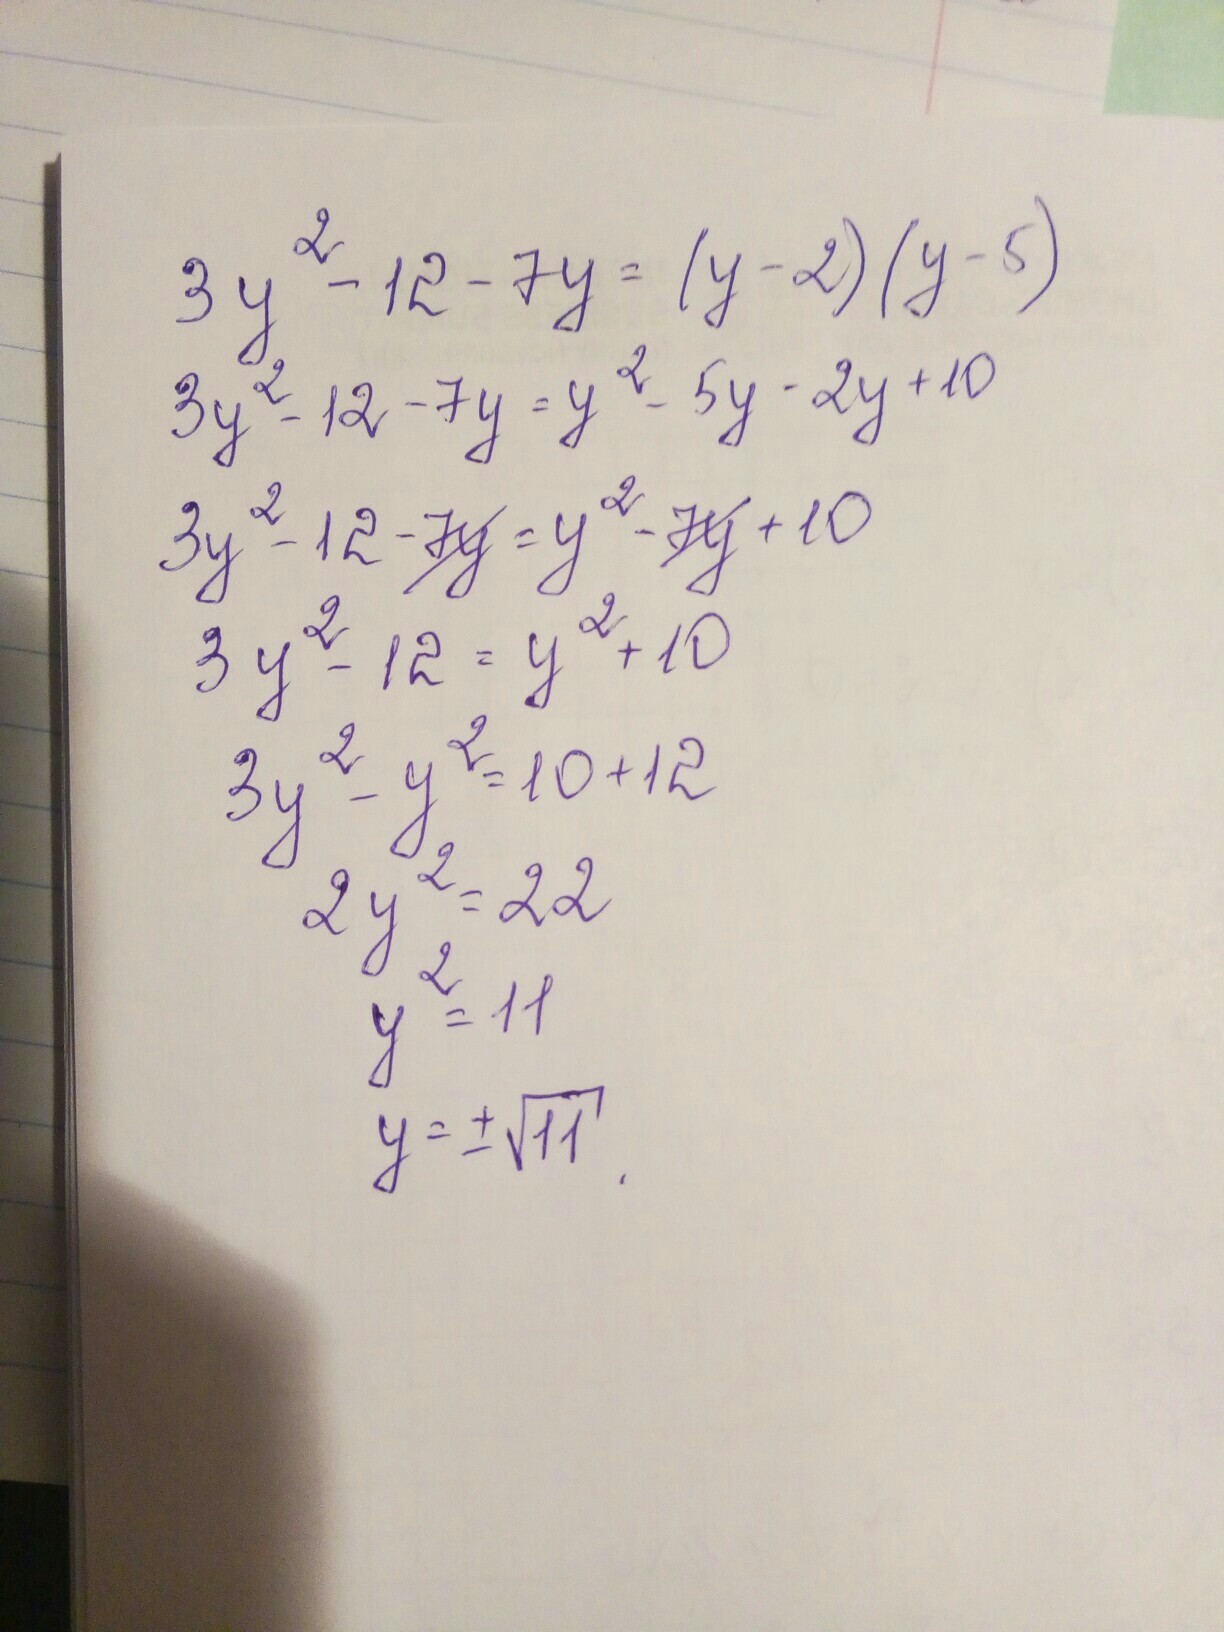 3y² - 12 - 7y = (y - 2)(y - 5)
3y² - 12 - 7y = y² - 5y - 2y + 10
3y² - 12 - 7y = y² - 7y + 10
3y² - 12 = y² + 10
3y² - y² = 10 + 12
2y² = 22
y² = 11
y = ±√11.